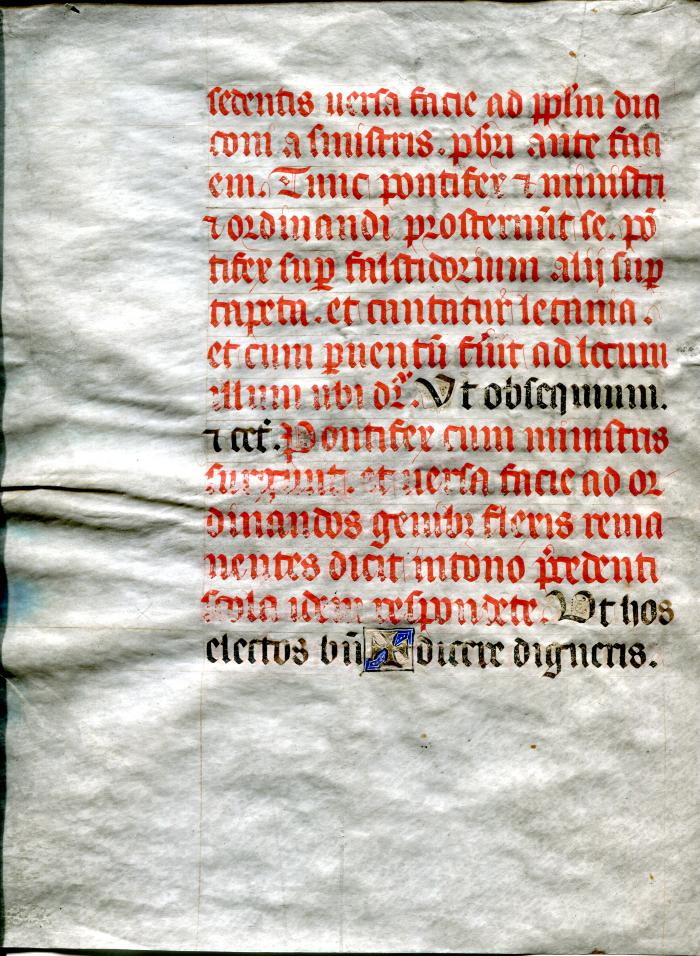 sedentis uersa facie ad ppl̄m dia
coni a sinistris. pb̄ri ante faci
em. Tunc pontifex ⁊ ministri
⁊ ordinandi prosternūt se. pō
tifex suꝑ falstidorium alij suꝑ
tapeta. et cantatur letania.
et cum ꝑuentū fūit ad locum
illum ubi dr̄. Vt obsequium.
⁊ cet̄. Pontifex cum ministris
surgunt. et uersa facie ad or
dinandos genibꝫ flexis rema
nentes dicit in tono p̄cedenti
scola idem respondete. Vt hos
electos bn̄ ✠ dicere digneris.